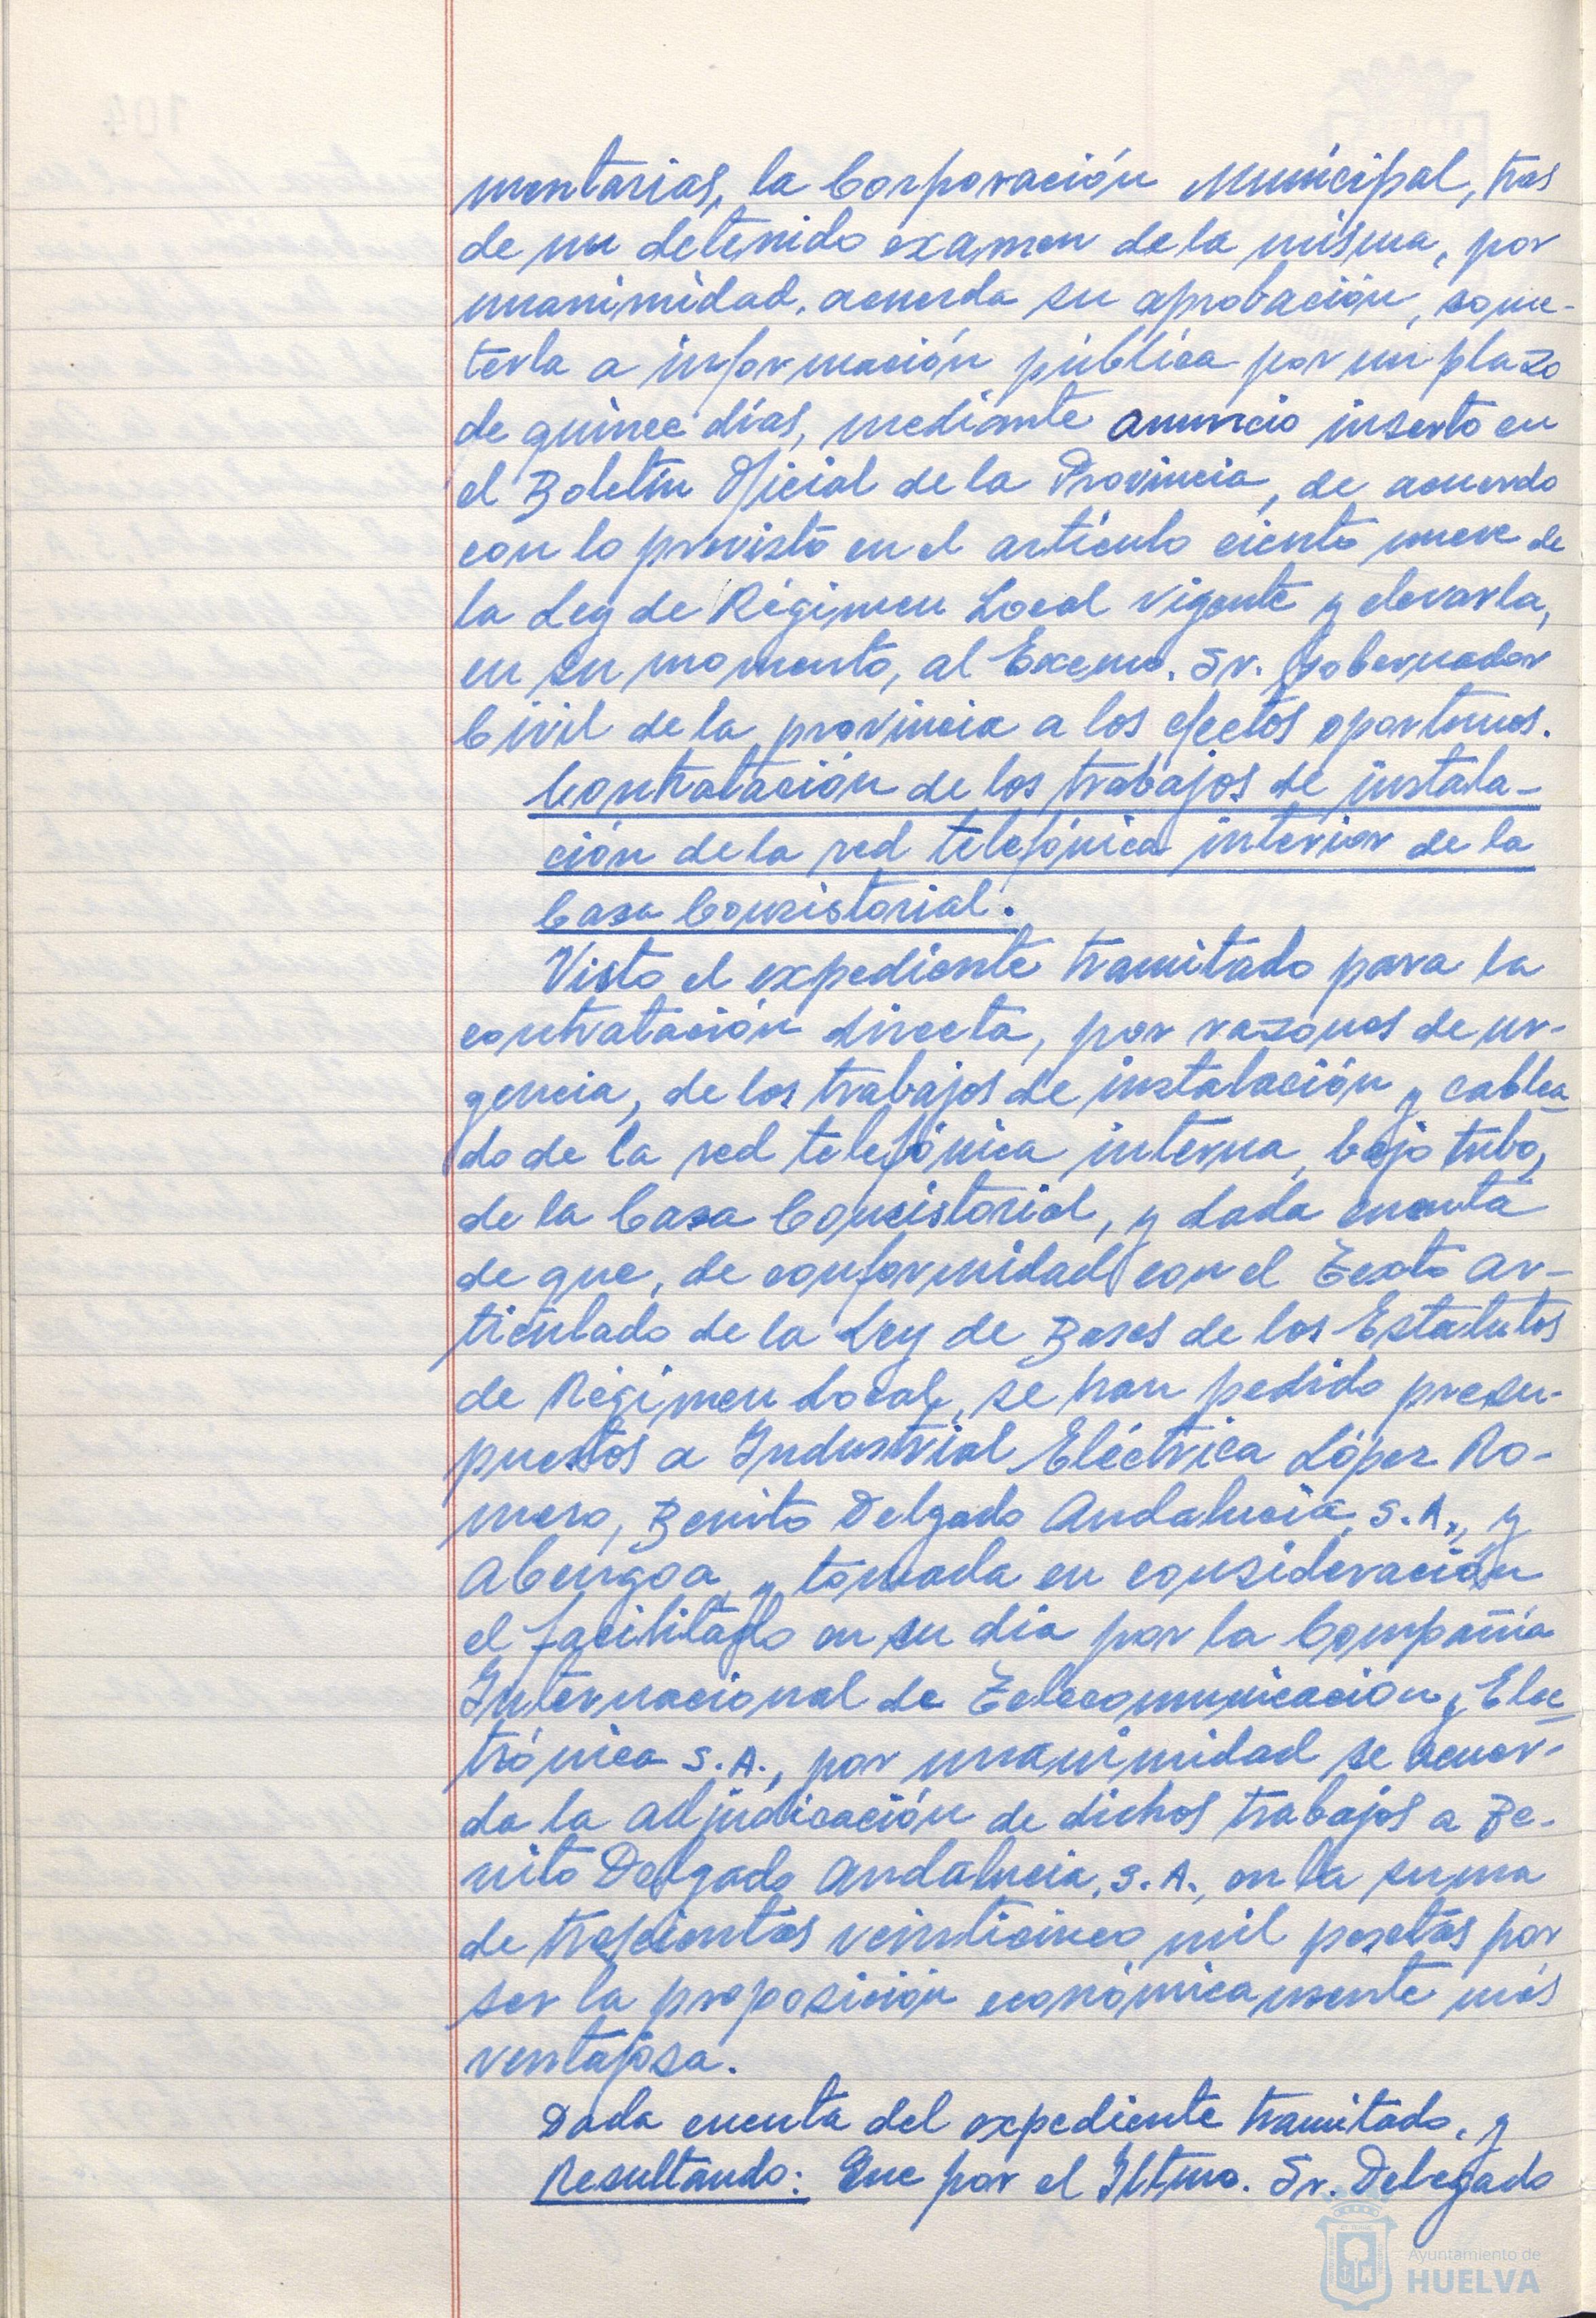 mentarias, la Corporación Municipal, tras
de un detenido examen de la misma, por
unanimidad, acuerda su aprobación, some-
terla a información pública por un plazo
de quince días, mediante anuncio inserto en
el Boletín Oficial de la Provincia, de acuerdo
con lo previsto en el artículo ciento nueve de
la Ley de Régimen Local vigente y elevarla,
en su momento, al Excmo. Sr. Gobernador
Civil de la provincia a los efectos oportunos.
Contratación de los trabajos de instala-
ción de la red telefónica interior de la
Casa Consistorial.
Visto el expediente tramitado para la
contratación directa, por razones de ur-
gencia, de los trabajos de instalación y cablea-
do de la red telefónica interna, bajo tubo,
de la Casa Consistorial, y dada cuenta
de que, de conformidad con el Texto ar-
ticulado de la Ley de Bases de los Estatutos
de Régimen Local, se han pedido presu-
puestos a Industrial Eléctrica López Ro-
mero, Benito Delgado Andalucía, S.A., y
Abengoa, y tomada en consideración
el facilitado en su día por la Compañía
Internacional de Telecomunicación y Elec-
trónica S.A., por unanimidad se acuer-
da la adjudicación de dichos trabajos a Be-
nito Delgado Andalucia, S.A., en la suma
de trescientas veinticinco mil pesetas por
ser la proposición económicamente más
ventajosa.
Dada cuenta del expediente tramitado, y
Resultando: Que por el Iltmo. Sr. Delegado
Ayuntamiento de
HUELVA